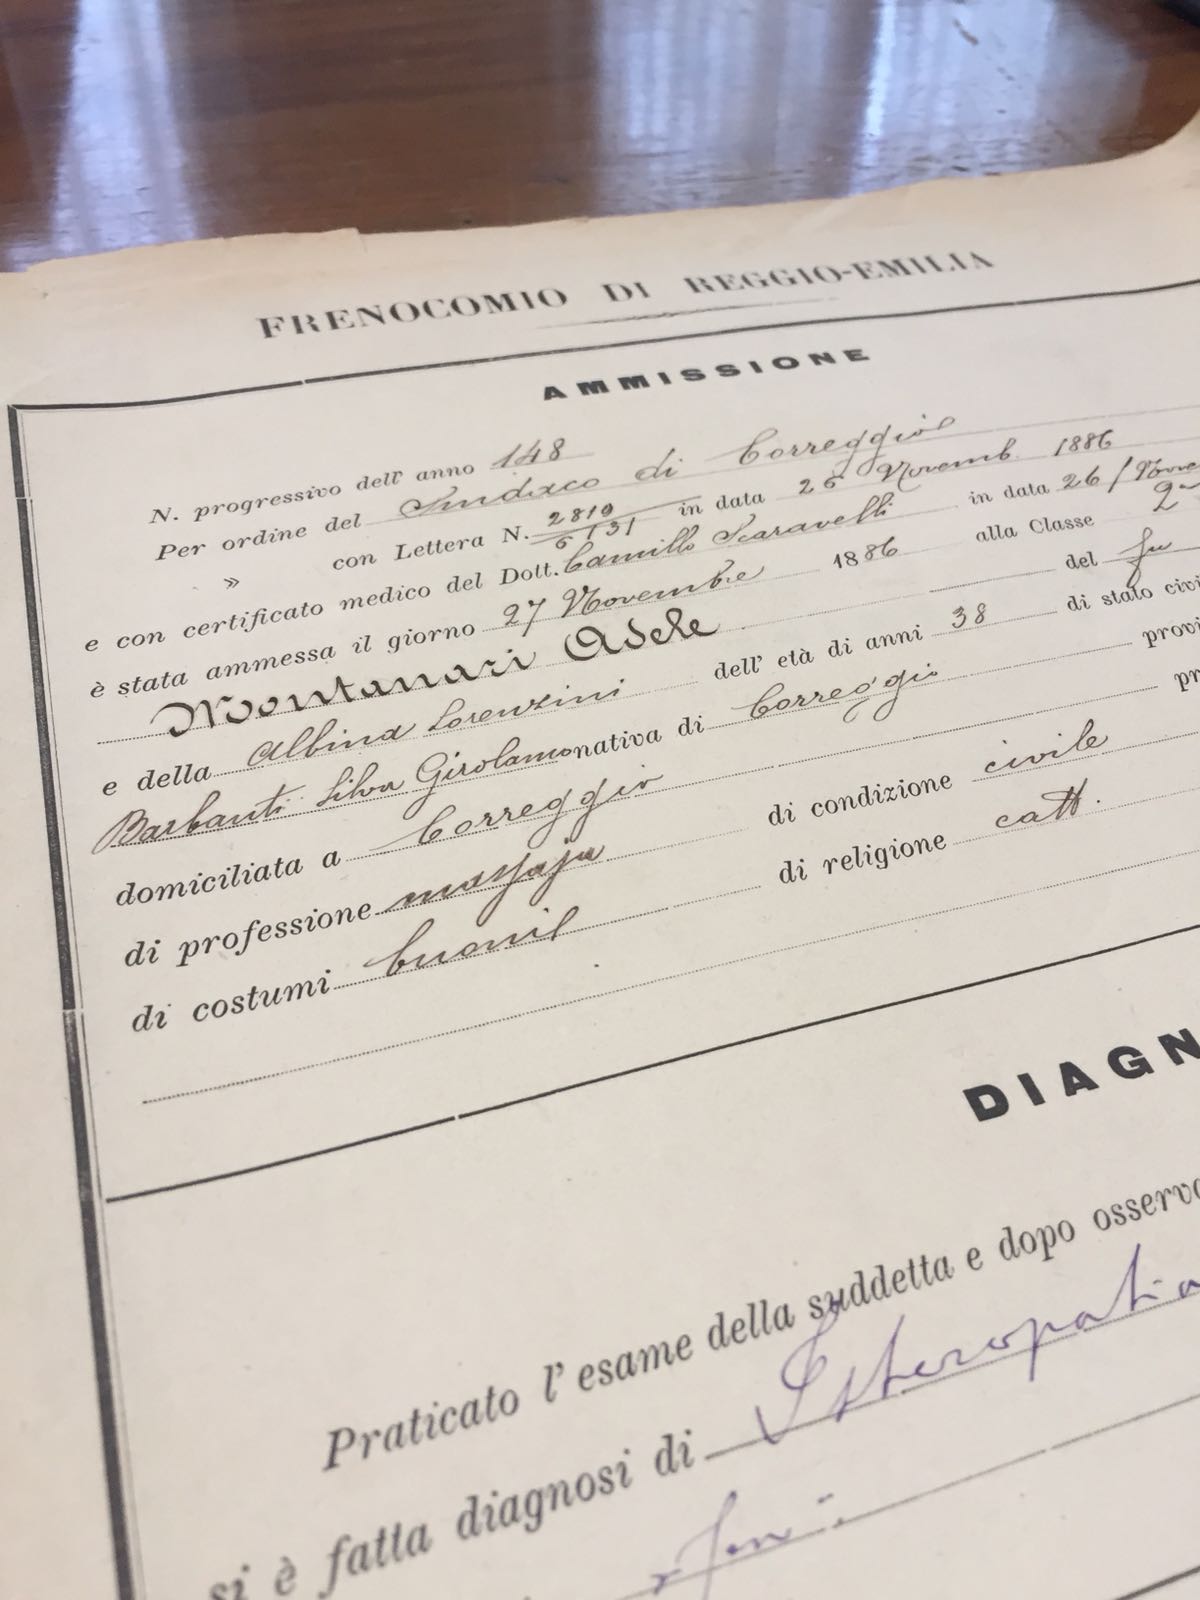 FRENOCOMIO DI REGGIO-EMILIA
AMMISSIONE
N. progressivo dell' anno 148
Per ordine del Sindaco di Correggio
» con Lettera N. 2810 / 6131 in data 26 Novemb. 1886
e con certificato medico del Dott. Camillo Scaravelli in data 26 / Nove
è stata ammessa il giorno 27 Novembre 1886 alla Classe 2ª
Montanari Adele del fu
e della Albina Lorenzini dell' età di anni 38 di stato civi
Barbanti Silva Girolamo nativa di Correggio provi
domiciliata a Correggio pr
di professione massaja di condizione civile
di costumi buoni di religione catt.
DIAGN
Praticato l' esame della suddetta e dopo osserva
si è fatta diagnosi di Isteropatia